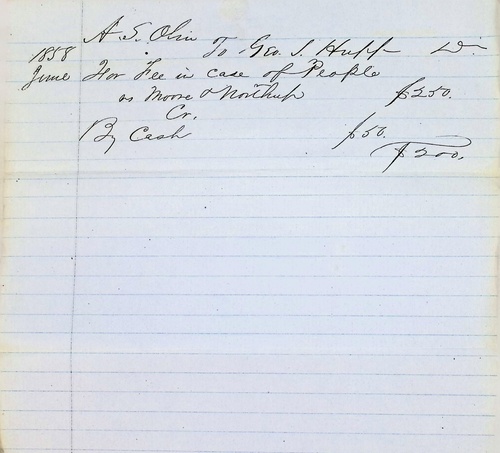 A. S. Olin
1858 To Geo. S. Hupp Dr
June For Fee in case of People
vs Moore & Northup $250.
Cr.
By Cash $50.
$200.